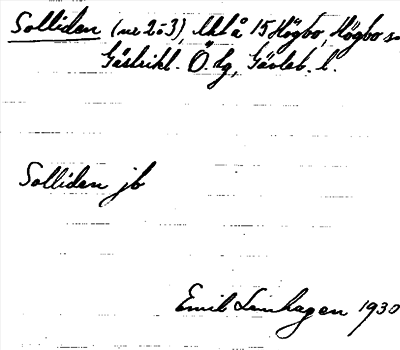 Solliden (nr 2-3), lht å 15 Högbo, Högbo s
Gästrikl. Ö. dg, Gävleb. l.
Solliden jb
Emil Lenhagen 1930